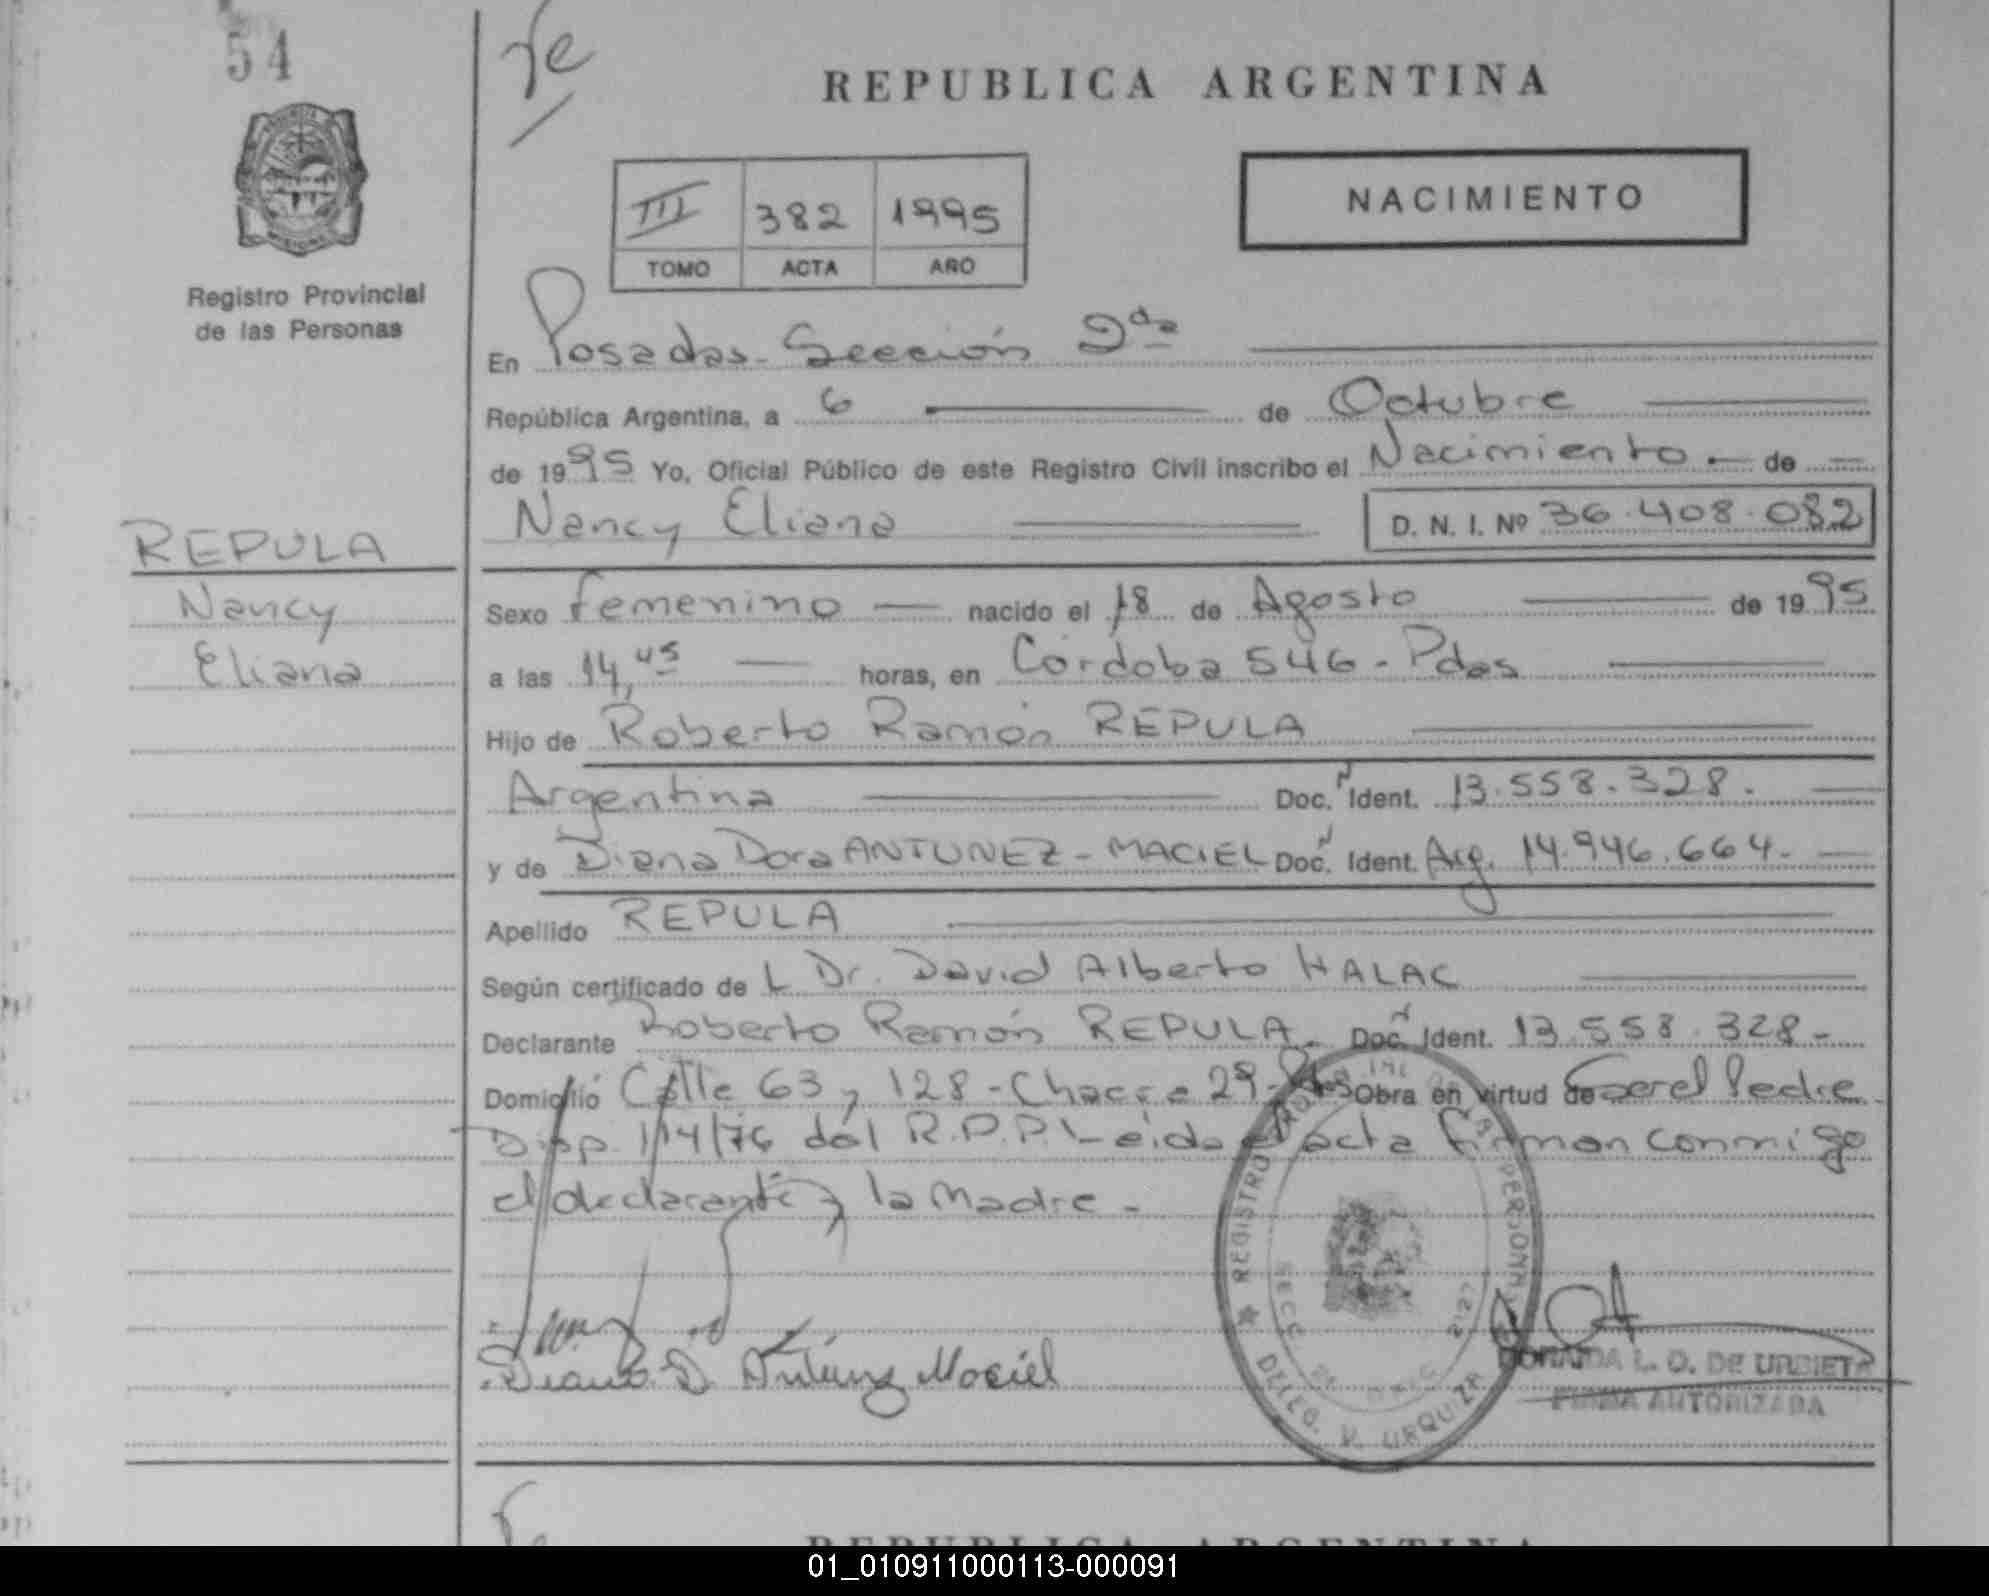 54
Te
REPUBLICA ARGENTINA
III 382 1995
TOMO ACTA AÑO
NACIMIENTO
Registro Provincial
de las Personas
En Posadas - Sección 2da
República Argentina, a 6 de Octubre
de 1995 Yo, Oficial Público de este Registro Civil inscribo el Nacimiento - de
Nancy Eliana D. N. I. Nº 36.408.082
REPULA
Nancy
Eliana
Sexo femenino nacido el 18 de Agosto de 1995
a las 14,45 horas, en Córdoba 546 - Pdas
Hijo de Roberto Ramón REPULA
Argentina Doc. Ident. 13.558.328.
y de Diana Dora ANTUNEZ - MACIEL Doc. Ident. Arg. 14.946.664.-
Apellido REPULA
Según certificado de L Dr. David Alberto HALAC
Declarante Roberto Ramón REPULA. Doc. Ident. 13.558.328-
Domicilio Calle 63 y 128 - Chacra 29 - Pdas Obra en virtud de Ser el Padre
Disp. 114/76 del R.P.P. Leída el acta firman conmigo
el declarante y la Madre -
Diana D. Antunez Maciel
REGISTRO PROVINCIAL DE LAS PERSONAS
SECC. 2da
DELEG. V. URQUIZA
L. O. DE URBIETA
FIRMA AUTORIZADA
REPUBLICA ARGENTINA
01_010911000113-000091